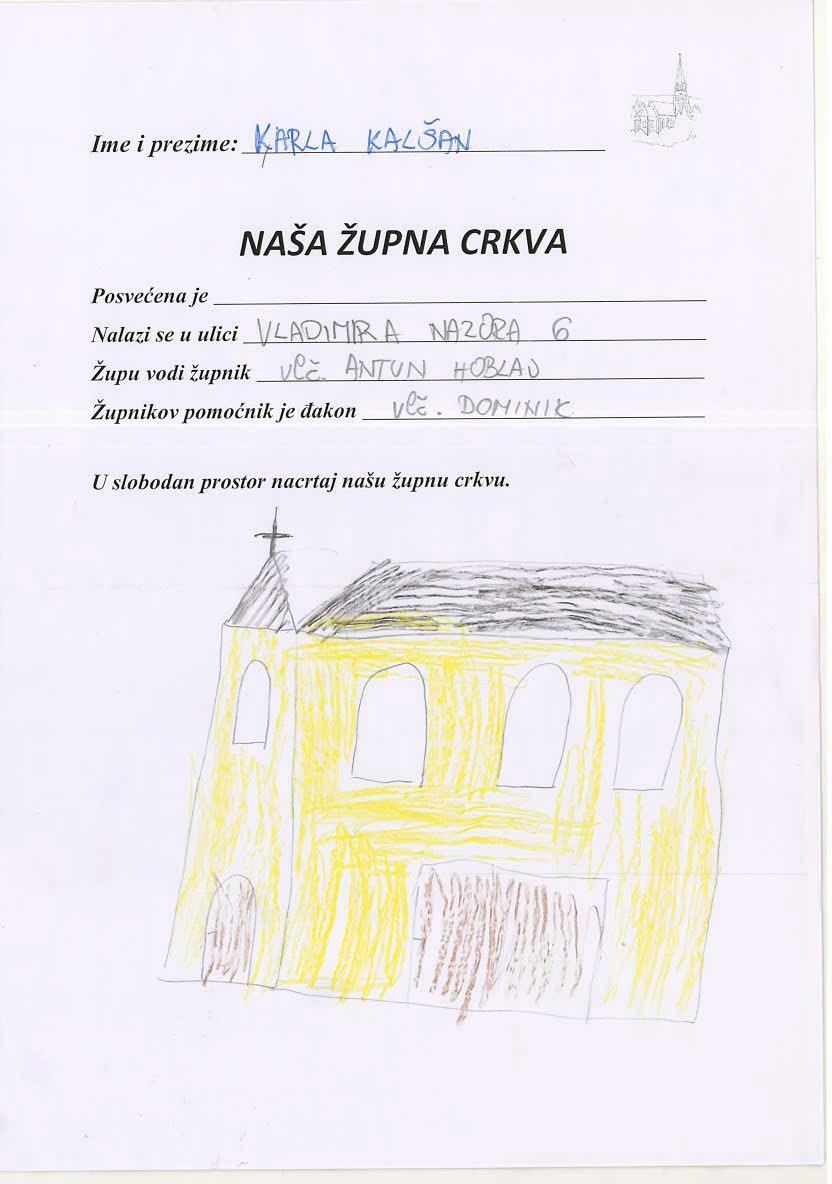 Ime i prezime: KARLA KALŠAN
NAŠA ŽUPNA CRKVA
Posvećena je
Nalazi se u ulici VLADIMIRA NAZORA 6
Župu vodi župnik vlč. ANTUN HOBLAJ
Župnikov pomoćnik je đakon vlč. DOMINIK
U slobodan prostor nacrtaj našu župnu crkvu.